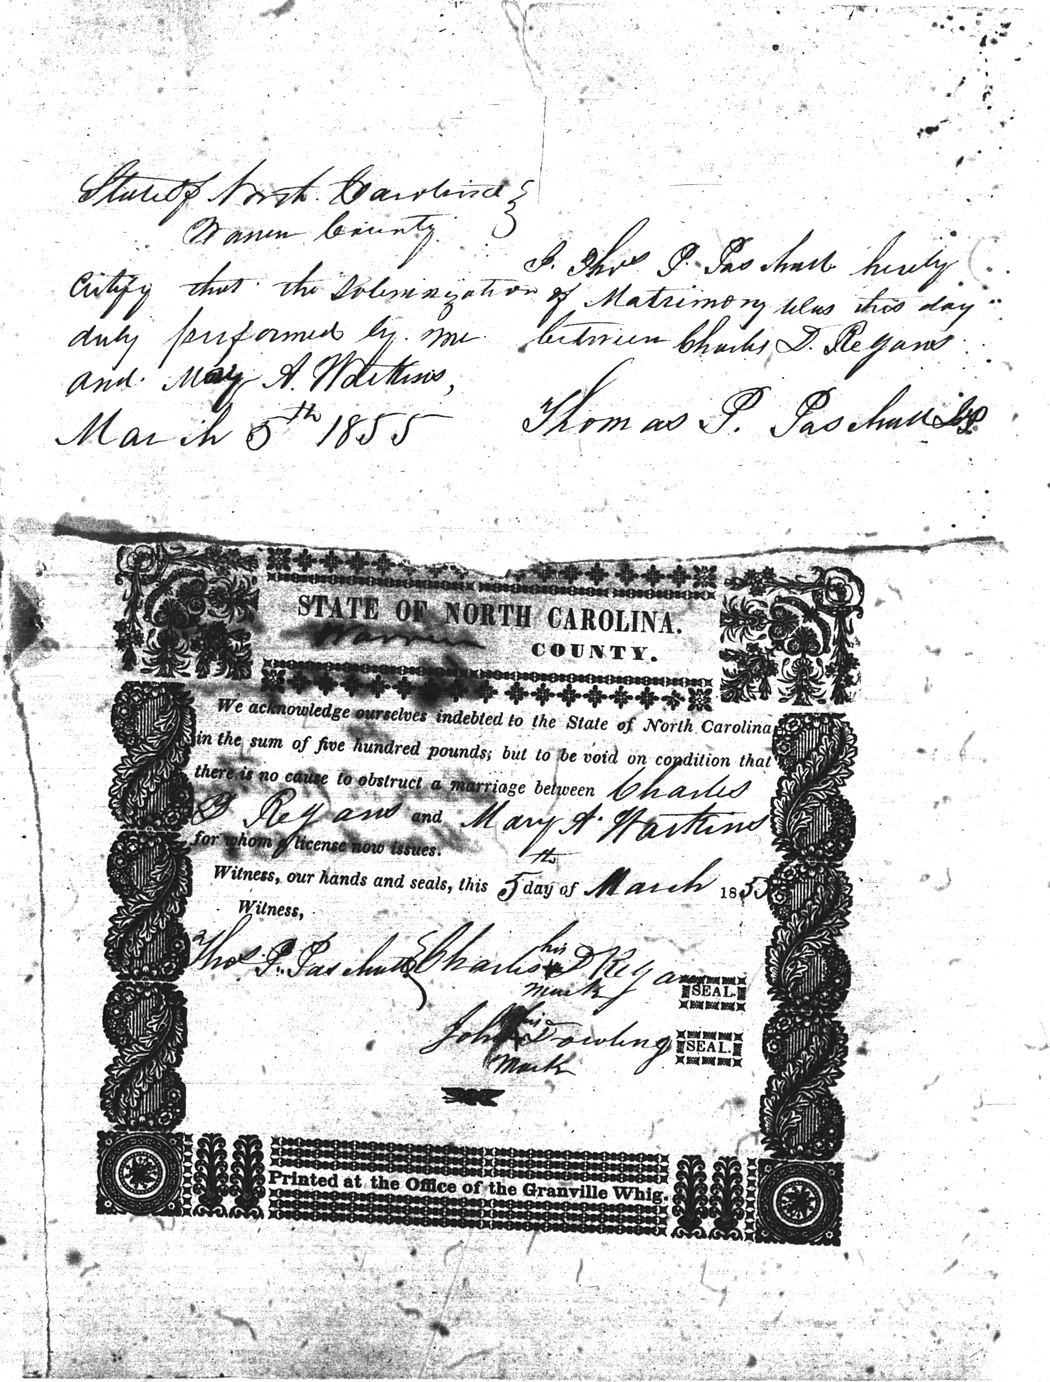 State of North Carolina }
Warren County
I. Thos P. Paschall hereby
certify that the Solemnization of Matrimony was this day
duly performed by me between Charles D. Regans
and Mary A. Watkins,
March 5th 1855 Thomas P. Paschall J.P.
STATE OF NORTH CAROLINA.
Warren COUNTY.
We acknowledge ourselves indebted to the State of North Carolina
in the sum of five hundred pounds; but to be void on condition that
there is no cause to obstruct a marriage between Charles
D Regans and Mary A. Watkins
for whom a license now issues.
Witness, our hands and seals, this 5th day of March 1855
Witness,
Thos P. Paschall } Charles his D Regans SEAL.
mark
John his Dowling SEAL.
mark
Printed at the Office of the Granville Whig.